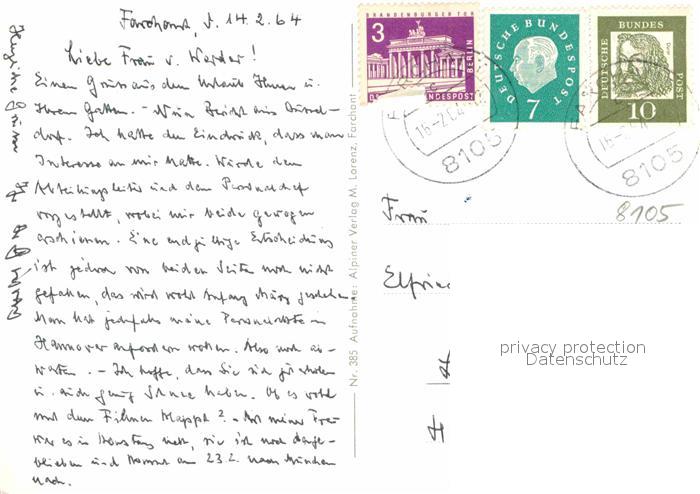 Farchant, d. 14.2.64
Liebe Frau v. Werder!
Einen Gruss aus dem Urlaub Ihnen u.
Ihrem Gatten. - Nun Bericht aus Düssel-
dorf. Ich hatte den Eindruck, dass man
Interesse an mir hatte. Wurde dem
Abteilungsleiter und dem Personalchef
vorgestellt, wobei mir beide gewogen
erschienen. Eine endgültige Entscheidung
ist jedoch von beiden Seiten noch nicht
gefallen, das wird wohl Anfang März geschehen.
Man hat jedenfalls meine Personalakte in
Hannover anfordern wollen. Also noch ab-
warten. - Ich hoffe, dass Sie sich gut erholen
u. auch genug Schnee haben. Ob es wohl
mit dem Filmen klappt? - Mit meiner Frau
war es in Konstanz nett, sie ist noch dage-
blieben und kommt am 23.2. nach München
nach.
Herzliche Grüsse
Ihr
Nr. 385 Aufnahme: Alpiner Verlag M. Lorenz, Farchant
3
BRANDENBURGER TOR
BERLIN
NDESPOST
DEUTSCHE BUNDESPOST
7
DEUTSCHE BUNDES POST
Dürer
10
8105
8105
Frau
8105
Elfrie
privacy protection
Datenschutz